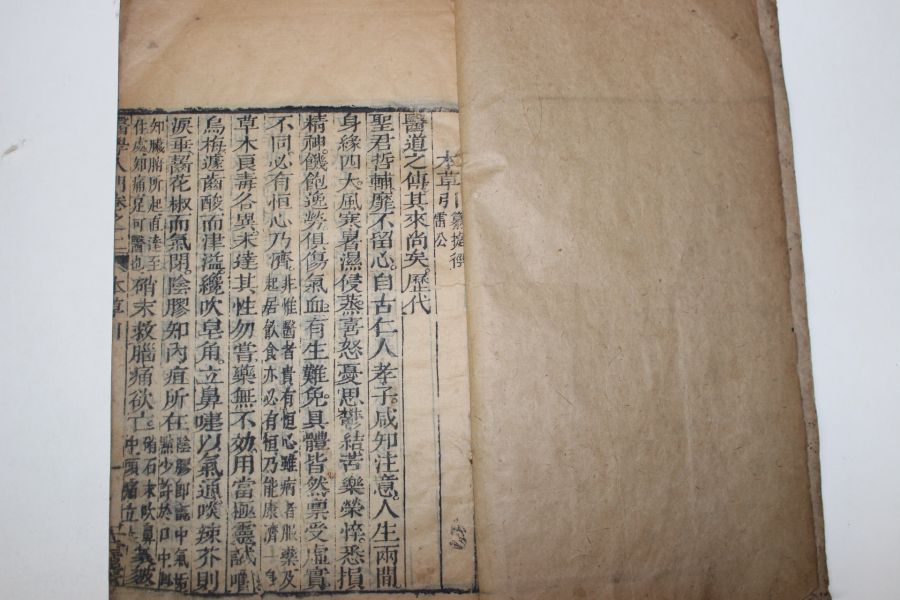 本草引 纂 雷公
醫道之傳其來尚矣歷代
聖君哲輔靡不留心自古仁人孝子咸知注意人生兩間
身緣四大風寒暑濕侵蒸喜怒憂思鬱結苦樂榮悴悉損
精神饑飽逸勞俱傷氣血有生難免具體皆然禀受虛實
不同必有恒心乃濟 非惟醫者貴有恒心雖病者服藥及
起居飲食亦必有恒乃能康濟
草木良毒各異未達其性勿嘗藥無不効用當極靈誠唯
烏梅遞齒酸而津溢纔吹皂角立鼻嚏以氣通啖辣芥則
淚垂齧花椒而氣閉陰膠知內疽所在 陰膠即甑中氣垢
點少許於口中即
知臟腑所起直達至
住處知痛足可醫也 硝末救腦痛欲亡 硝石末吹鼻
中頭痛立
醫學入門卷之二 本草引